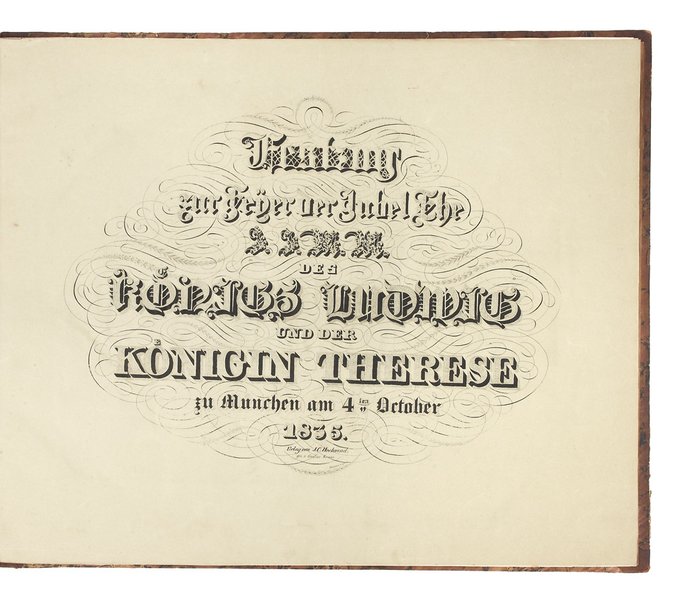 Festzug
zur Feÿer der Jubel Ehe
I. I. M. M.
DES
KÖNIGS LUDWIG
UND DER
KÖNIGIN THERESE
zu Munchen am 4ten October
1835.
Verlag von J. C. Hochwind.